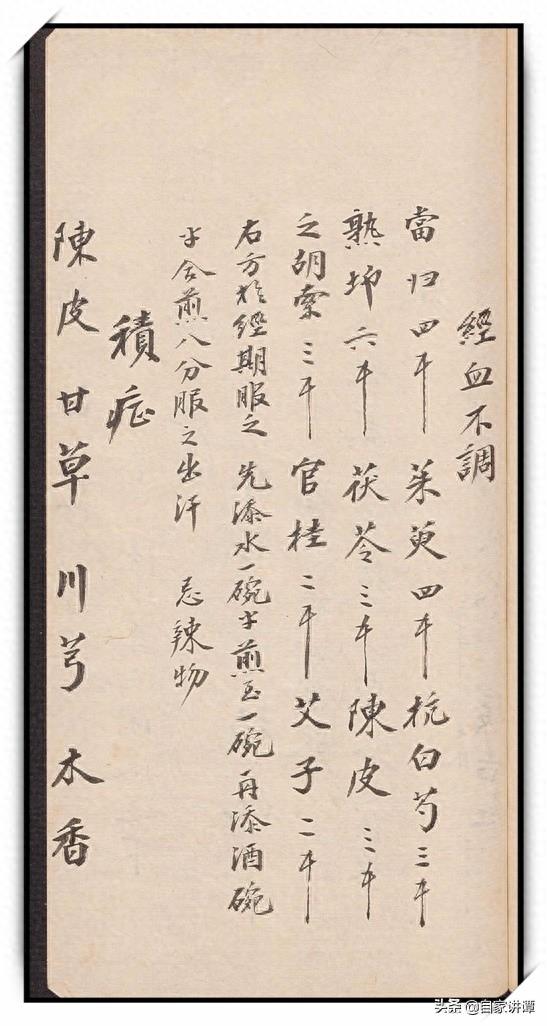 經血不調
當归四钱 茱萸四钱 杭白芍三钱
熟地六钱 茯苓三钱 陳皮三钱
之胡索三钱 官桂二钱 艾子二钱
右方於經期服之 先添水一碗半煎至一碗再添酒碗
半合煎八分服之出汗 忌辣物
積症
陳皮 甘草 川芎 木香
头条 @自家讲谭